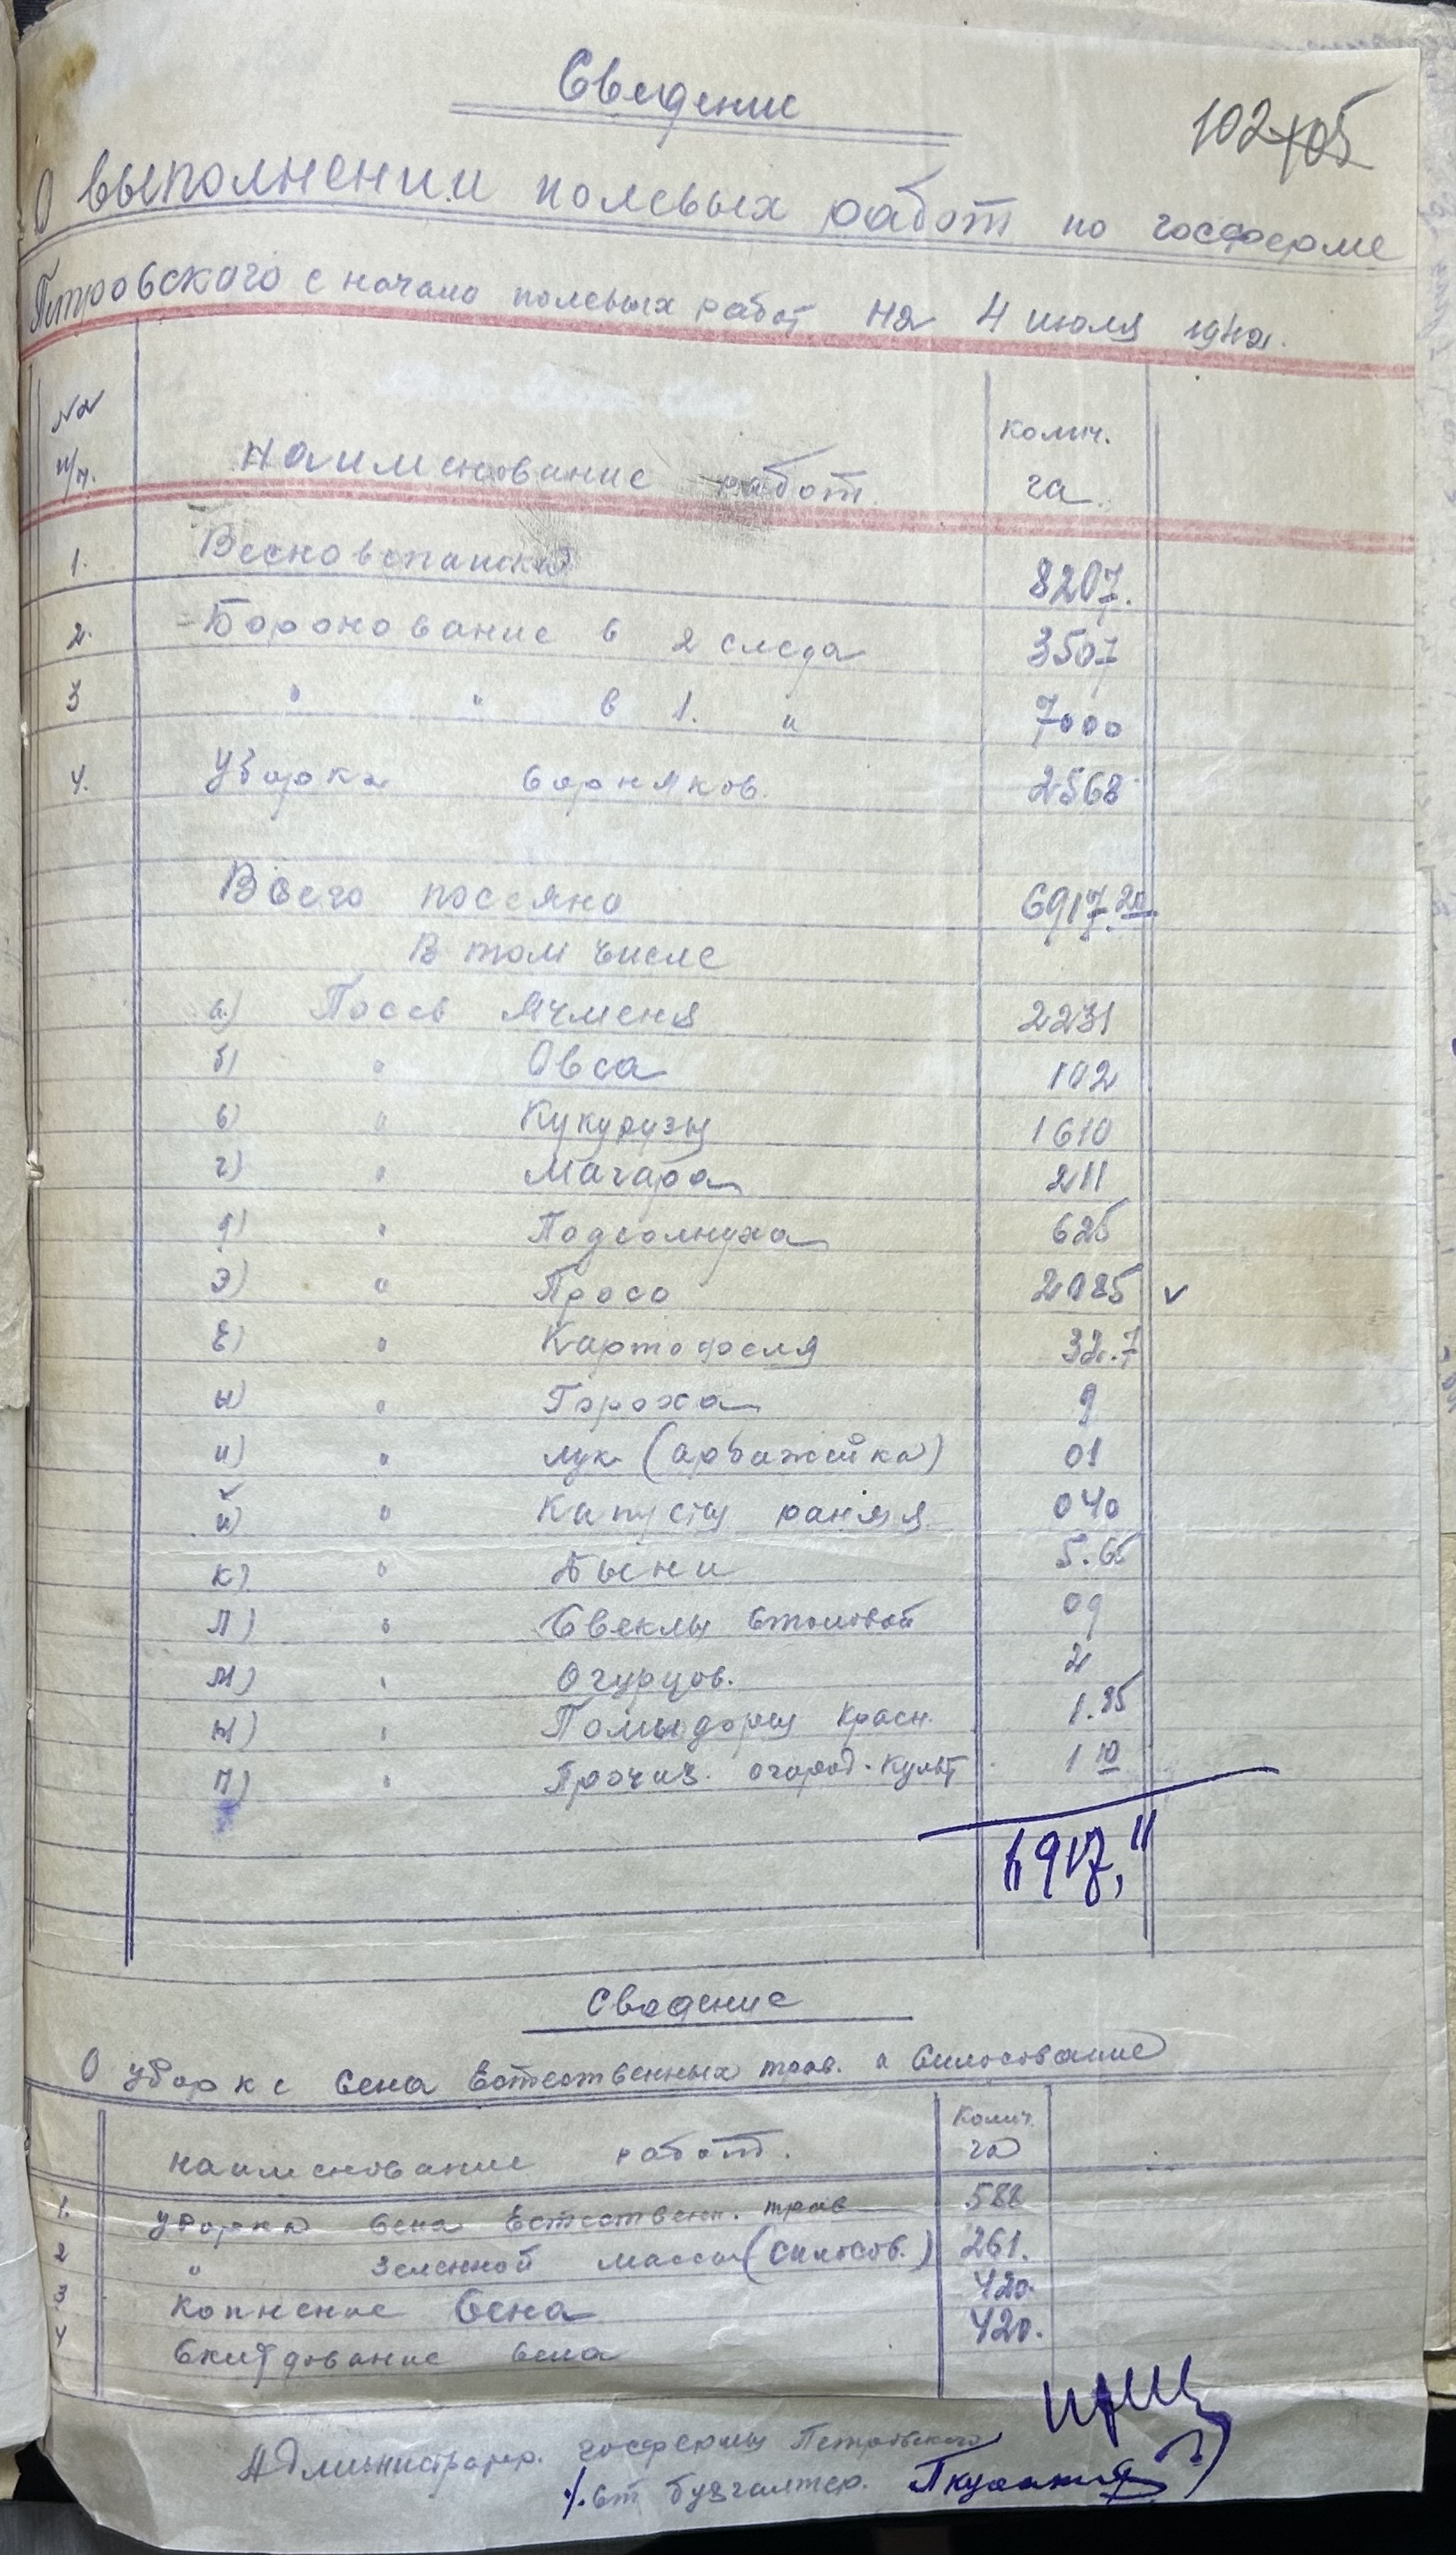 Сведение
102 105
О выполнении полевых работ по госферме
Петровского с начало полевых работ на 4 июля 1942.
№№ п/п. Наименование работ. колич. га.
1. Весновспашка 8207.
2. Боронование в 2 следа 3507
3 " " в 1. " 7000
4. Уборка сорняков. 2568
Всего посеяно 6917.20
В том числе
а) Посев Ячменя 2231
б) " Овса 102
в) " Кукурузы 1610
г) " Могара 211
д) " Подсолнуха 625
э) " Просо 2085 ✓
е) " Картофеля 32.7
ы) " Гороха 9
и) " лук (арбажейка) 01
й) " Капусты раняя 040
к) " Дыни 5.65
л) " Свеклы столовой 09
м) " Огурцов. 2
н) " Помидоры красн. 1.85
п) " Прочих огород. культ 1 10
6917,11
Сведение
О уборке сена Естественных трав. и Силосование
Наименование работ. Колич. га
1. Уборка сена Естествен. трав 588
2 " Зеленной массы (силосов.) 261.
3 Копнение Сена 420.
4 Скирдование сена 420.
Администратор. госфермы Петровского
ст бухгалтер.